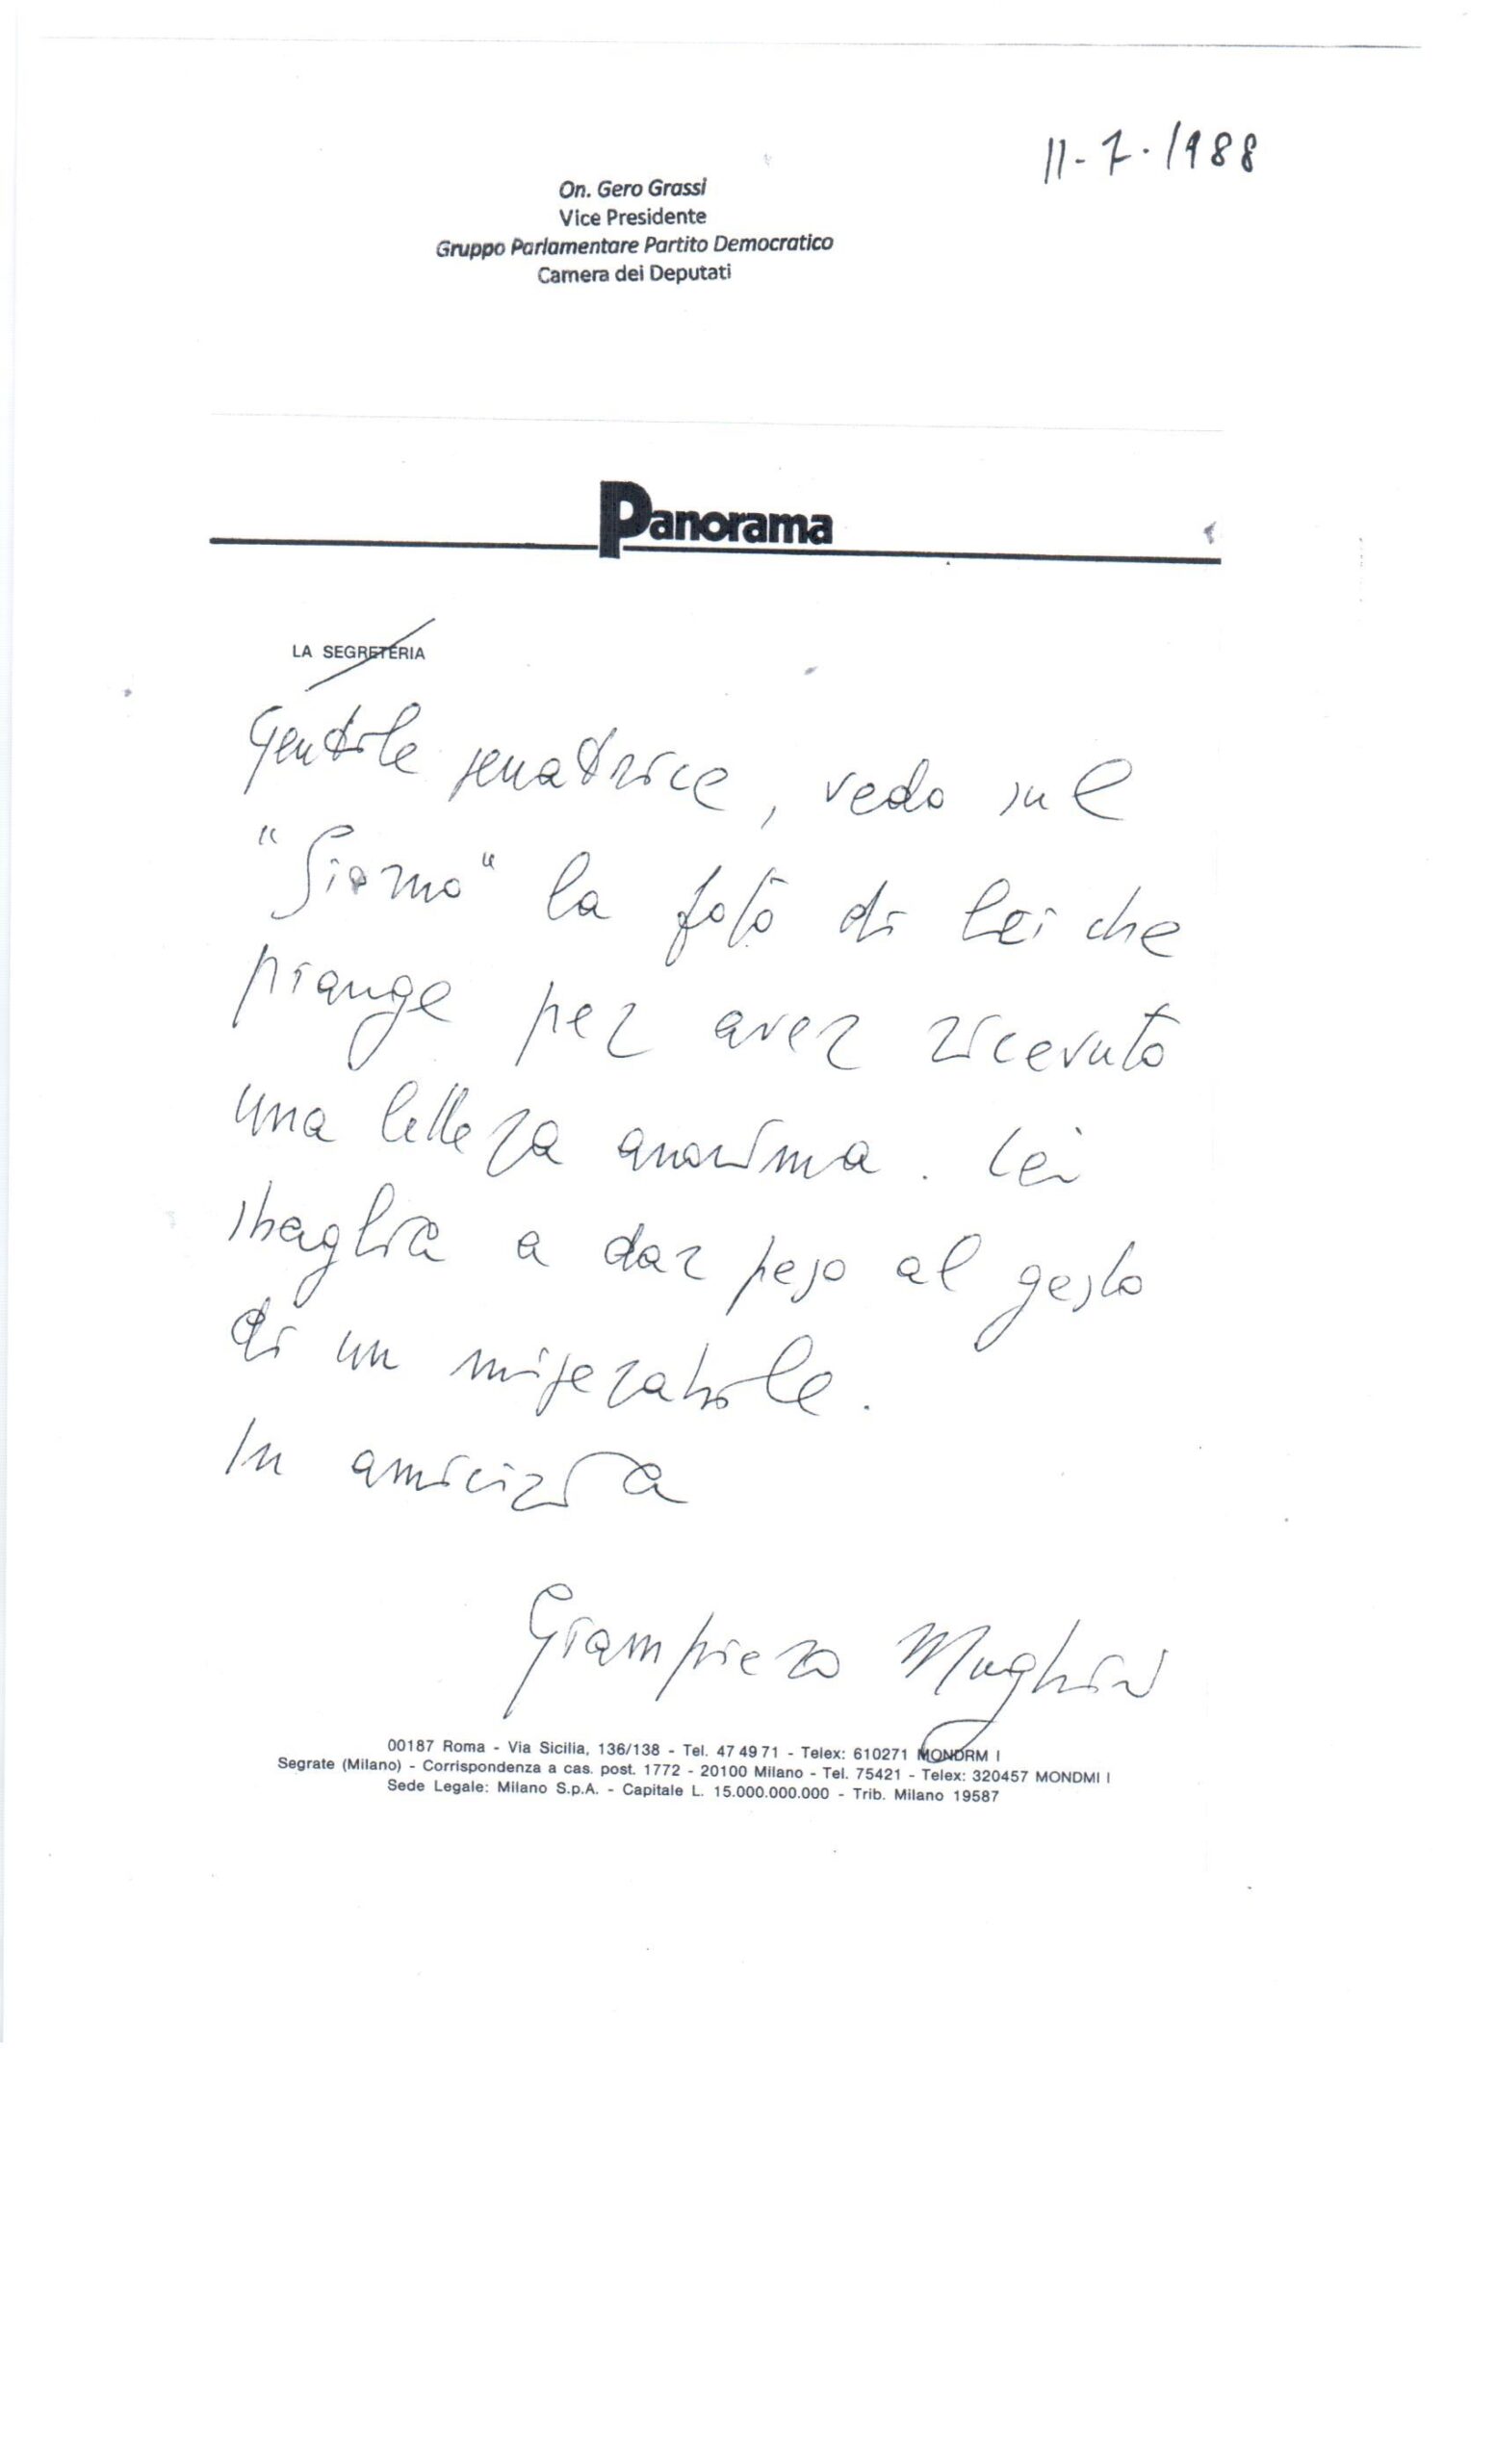 11-7-1988
On. Gero Grassi
Vice Presidente
Gruppo Parlamentare Partito Democratico
Camera dei Deputati
Panorama
LA SEGRETERIA
Gentile senatrice, vedo sul
"Giorno" la foto di lei che
piange per aver ricevuto
una lettera anonima. Lei
sbaglia a dar peso al gesto
di un miserabile.
In amicizia
Giampiero Mughini
00187 Roma - Via Sicilia, 136/138 - Tel. 47 49 71 - Telex: 610271 MONDRM I
Segrate (Milano) - Corrispondenza a cas. post. 1772 - 20100 Milano - Tel. 75421 - Telex: 320457 MONDMI I
Sede Legale: Milano S.p.A. - Capitale L. 15.000.000.000 - Trib. Milano 19587